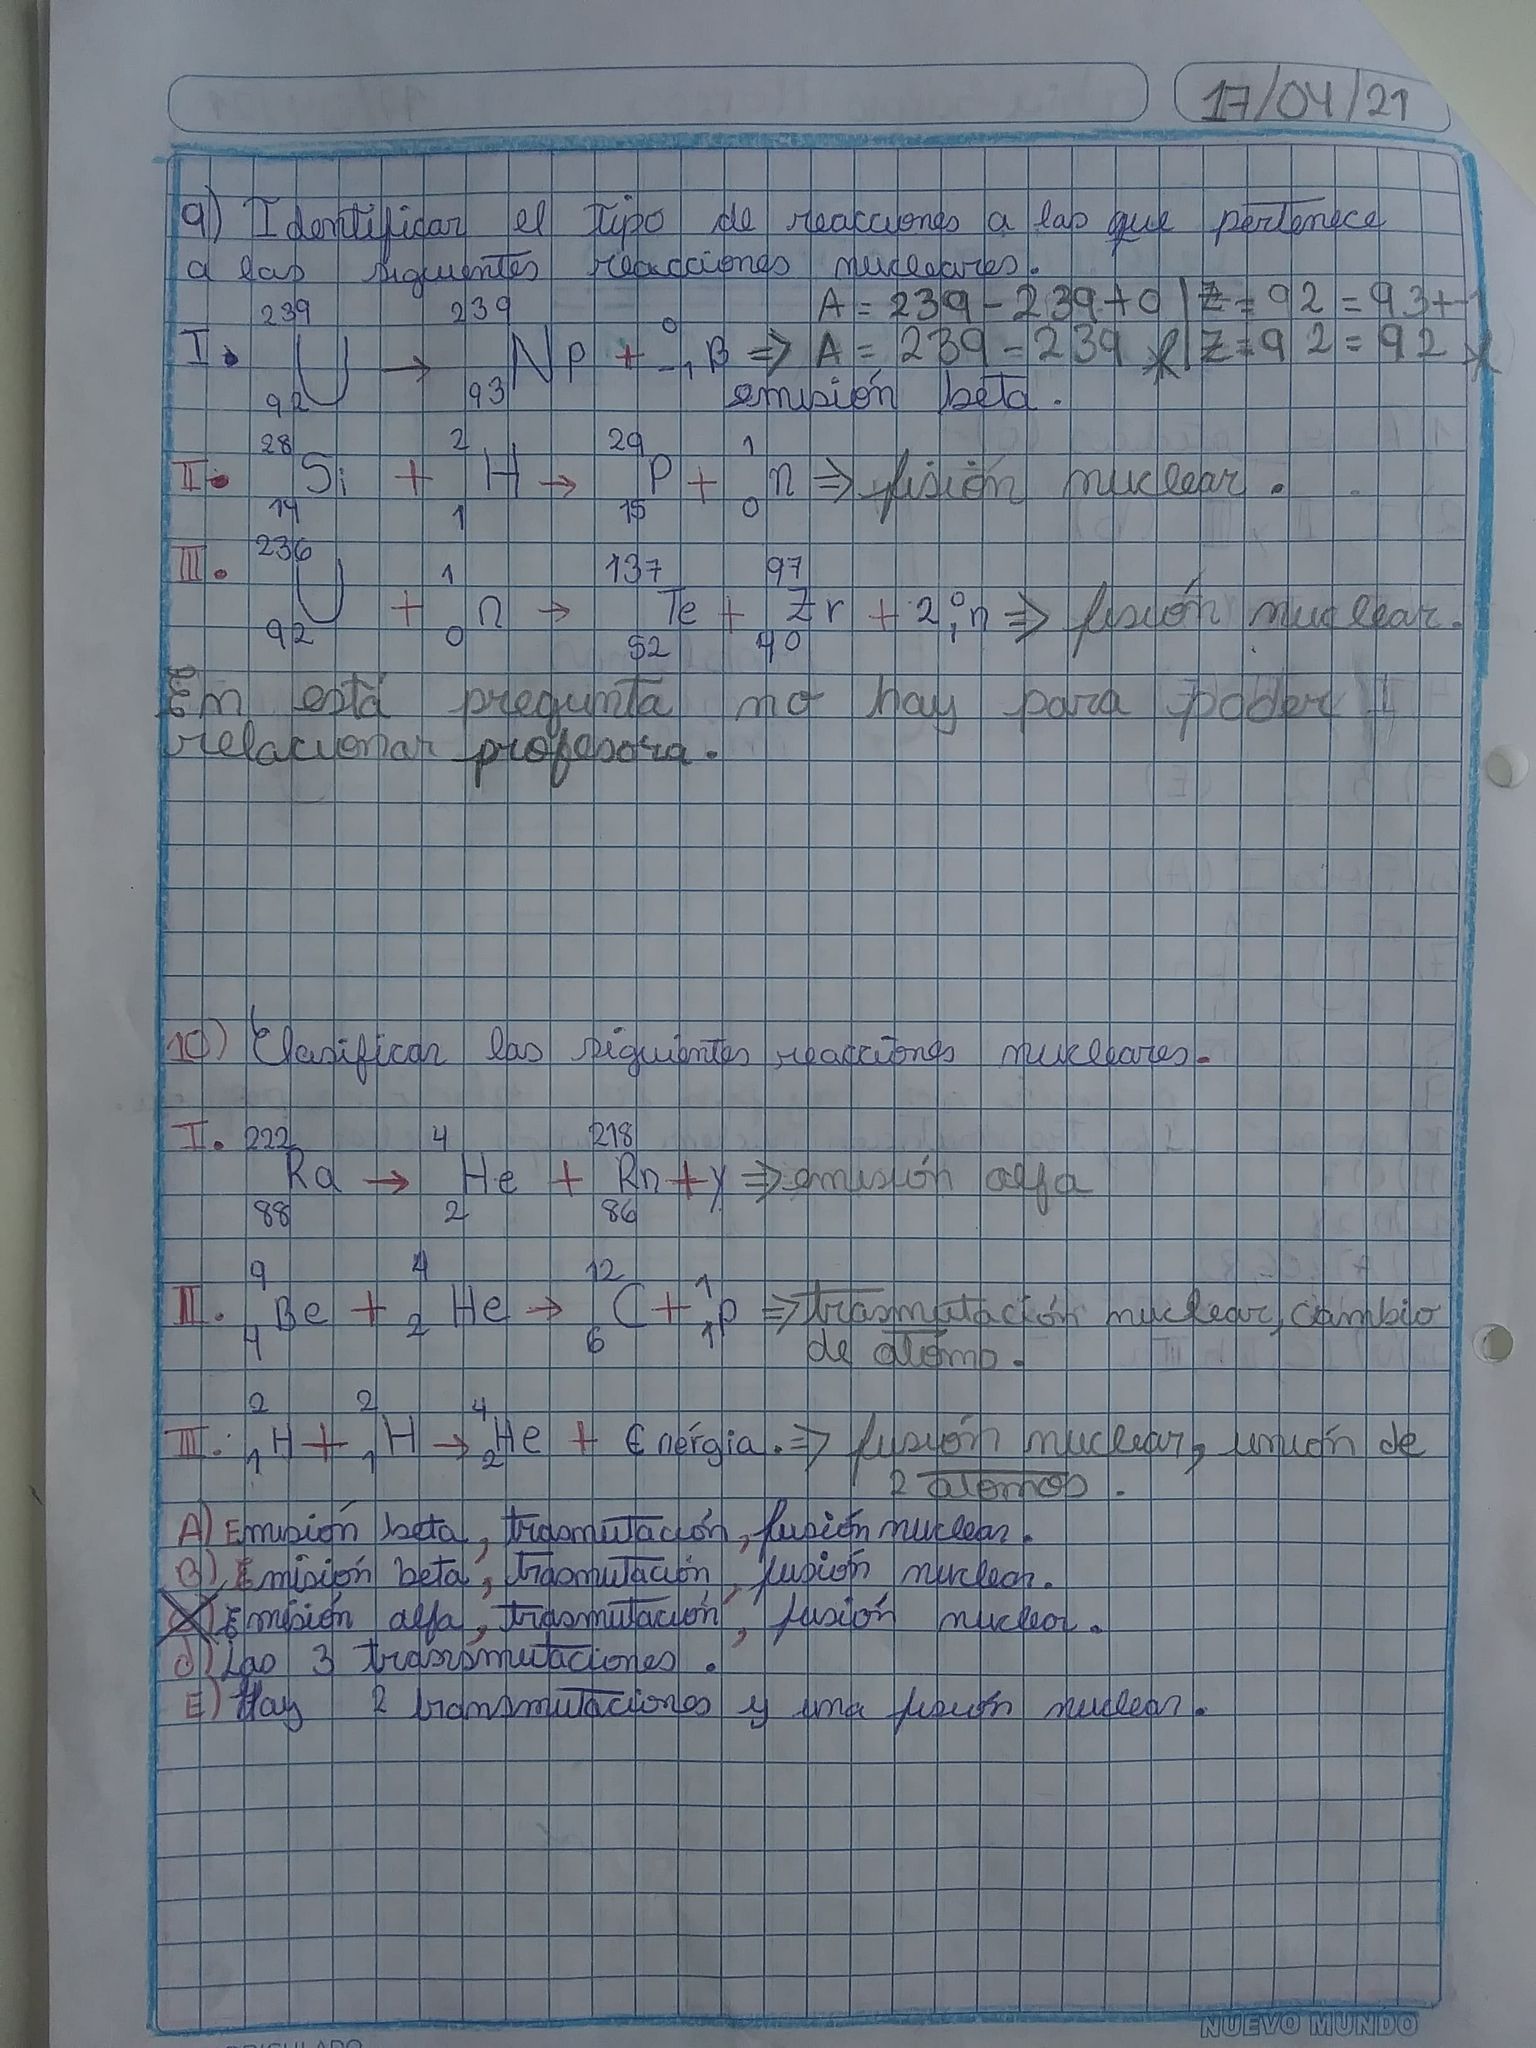 17/04/21
9) Identificar el tipo de reacciones a las que pertenece
a las siguientes reacciones nucleares.
A = 239 - 239 + 0 | Z = 92 = 93 + -1
I. 239 92 U → 239 93 Np + 0 -1 B ⇒ A = 239 = 239 | Z = 92 = 92
emisión beta.
II. 28 14 Si + 2 1 H → 29 15 P + 1 0 n ⇒ fisión nuclear.
III. 236 92 U + 1 0 n → 137 52 Te + 97 40 Zr + 2 0 1 n ⇒ fisión nuclear.
En está pregunta no hay para poder
relacionar profesora.
10) Clasificar las siguientes reacciones nucleares.
I. 222 88 Ra → 4 2 He + 218 86 Rn + γ ⇒ emisión alfa
II. 9 4 Be + 4 2 He → 12 6 C + 1 1 p ⇒ trasmutación nuclear, cambio
de atomo.
III. 2 1 H + 2 1 H → 4 2 He + Enérgia. ⇒ fusión nuclear, unión de
2 atomos.
A) Emisión beta, trasmutación, fusión nuclear.
B) Emisión beta, trasmutación, fusión nuclear.
C) Emisión alfa, trasmutación, fusión nuclear.
d) Las 3 transmutaciones.
E) Hay 2 transmutaciones y una fisión nuclear.
NUEVO MUNDO